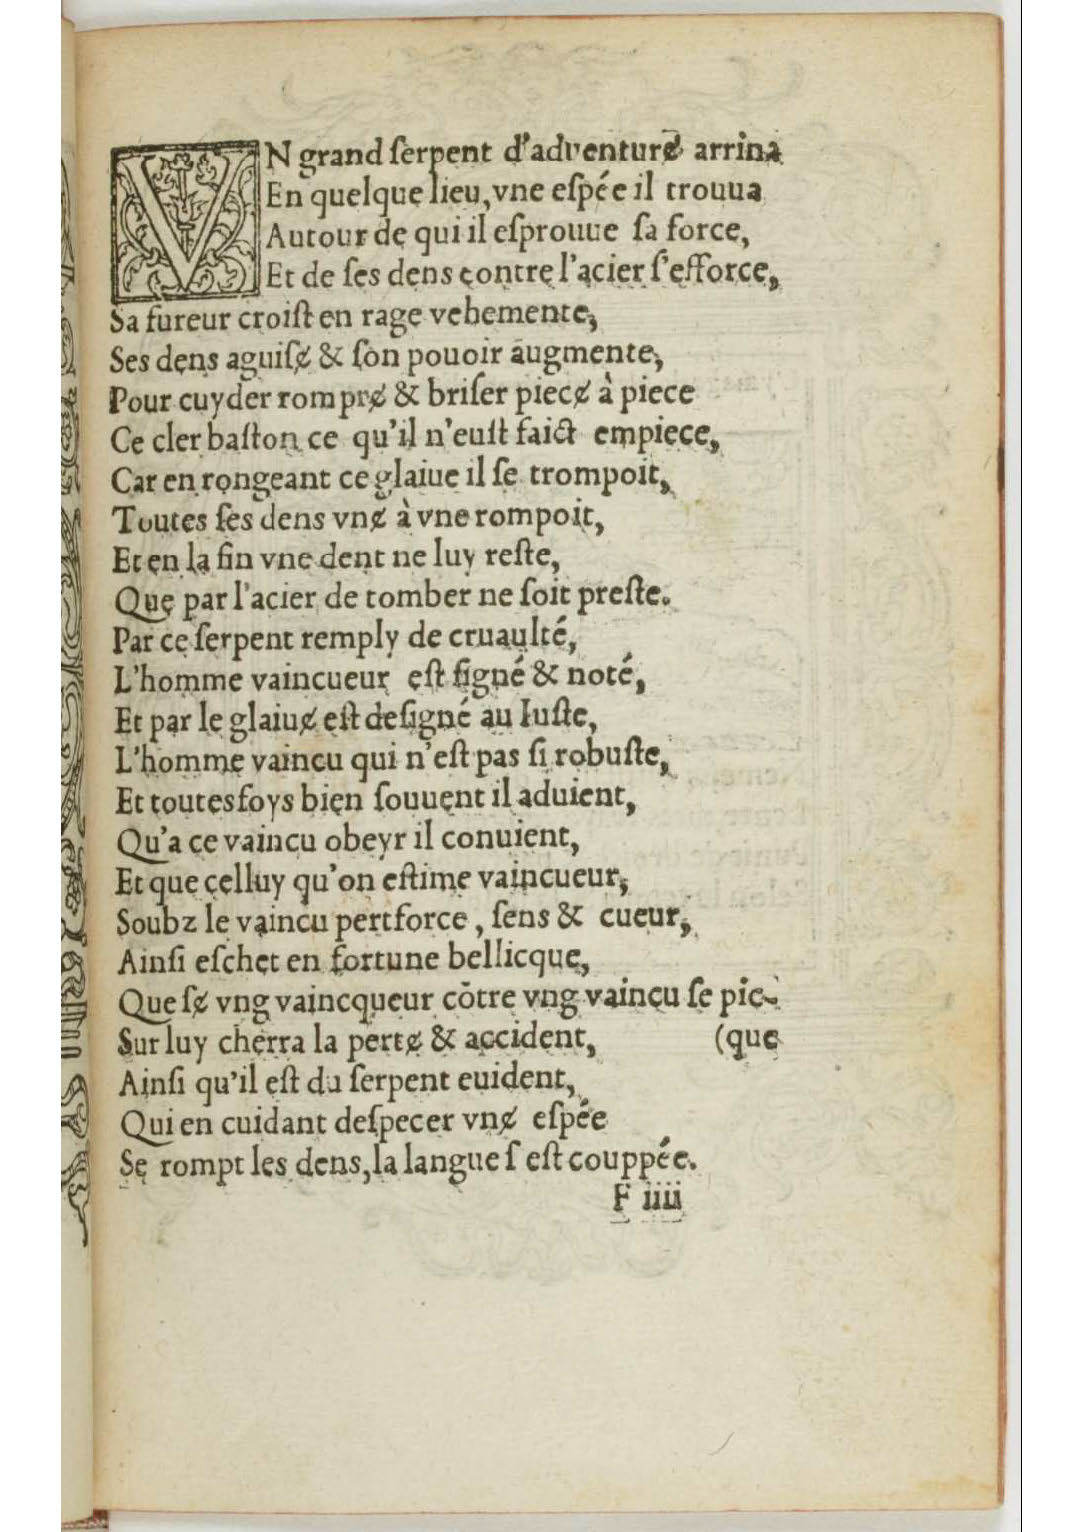 VN grand ſerpent d'adventurɇ arriua
En quelque lieu, vne eſpée il trouua
Autour de qui il eſprouue ſa force,
Et de ſes dens contre l'acier ſ'efforce,
Sa fureur croiſt en rage vehemente,
Ses dens aguiſɇ & ſon pouoir augmente,
Pour cuyder romprɇ & briſer piecɇ à piece
Ce cler baſton ce qu'il n'euſt faict empiece,
Car en rongeant ce glaiue il ſe trompoit,
Toutes ſes dens vnɇ à vne rompoit,
Et en la fin vne dent ne luy reſte,
Que par l'acier de tomber ne ſoit preſte.
Par ce ſerpent remply de cruaulté,
L'homme vaincueur eſt ſigné & noté,
Et par le glaiuɇ eſt deſigné au Iuſte,
L'homme vaincu qui n'eſt pas ſi robuſte,
Et toutesfoys bien ſouuent il aduient,
Qu'a ce vaincu obeyr il conuient,
Et que celluy qu'on eſtime vaincueur,
Soubz le vaincu pert force, ſens & cueur,
Ainſi eſchet en fortune bellicque,
Que ſɇ vng vaincqueur cõtre vng vaincu ſe pic-
Sur luy cherra la pertɇ & accident, (que
Ainſi qu'il eſt du ſerpent euident,
Qui en cuidant deſpecer vnɇ eſpée
Se rompt les dens, la langue ſ'eſt couppée.
F iiii